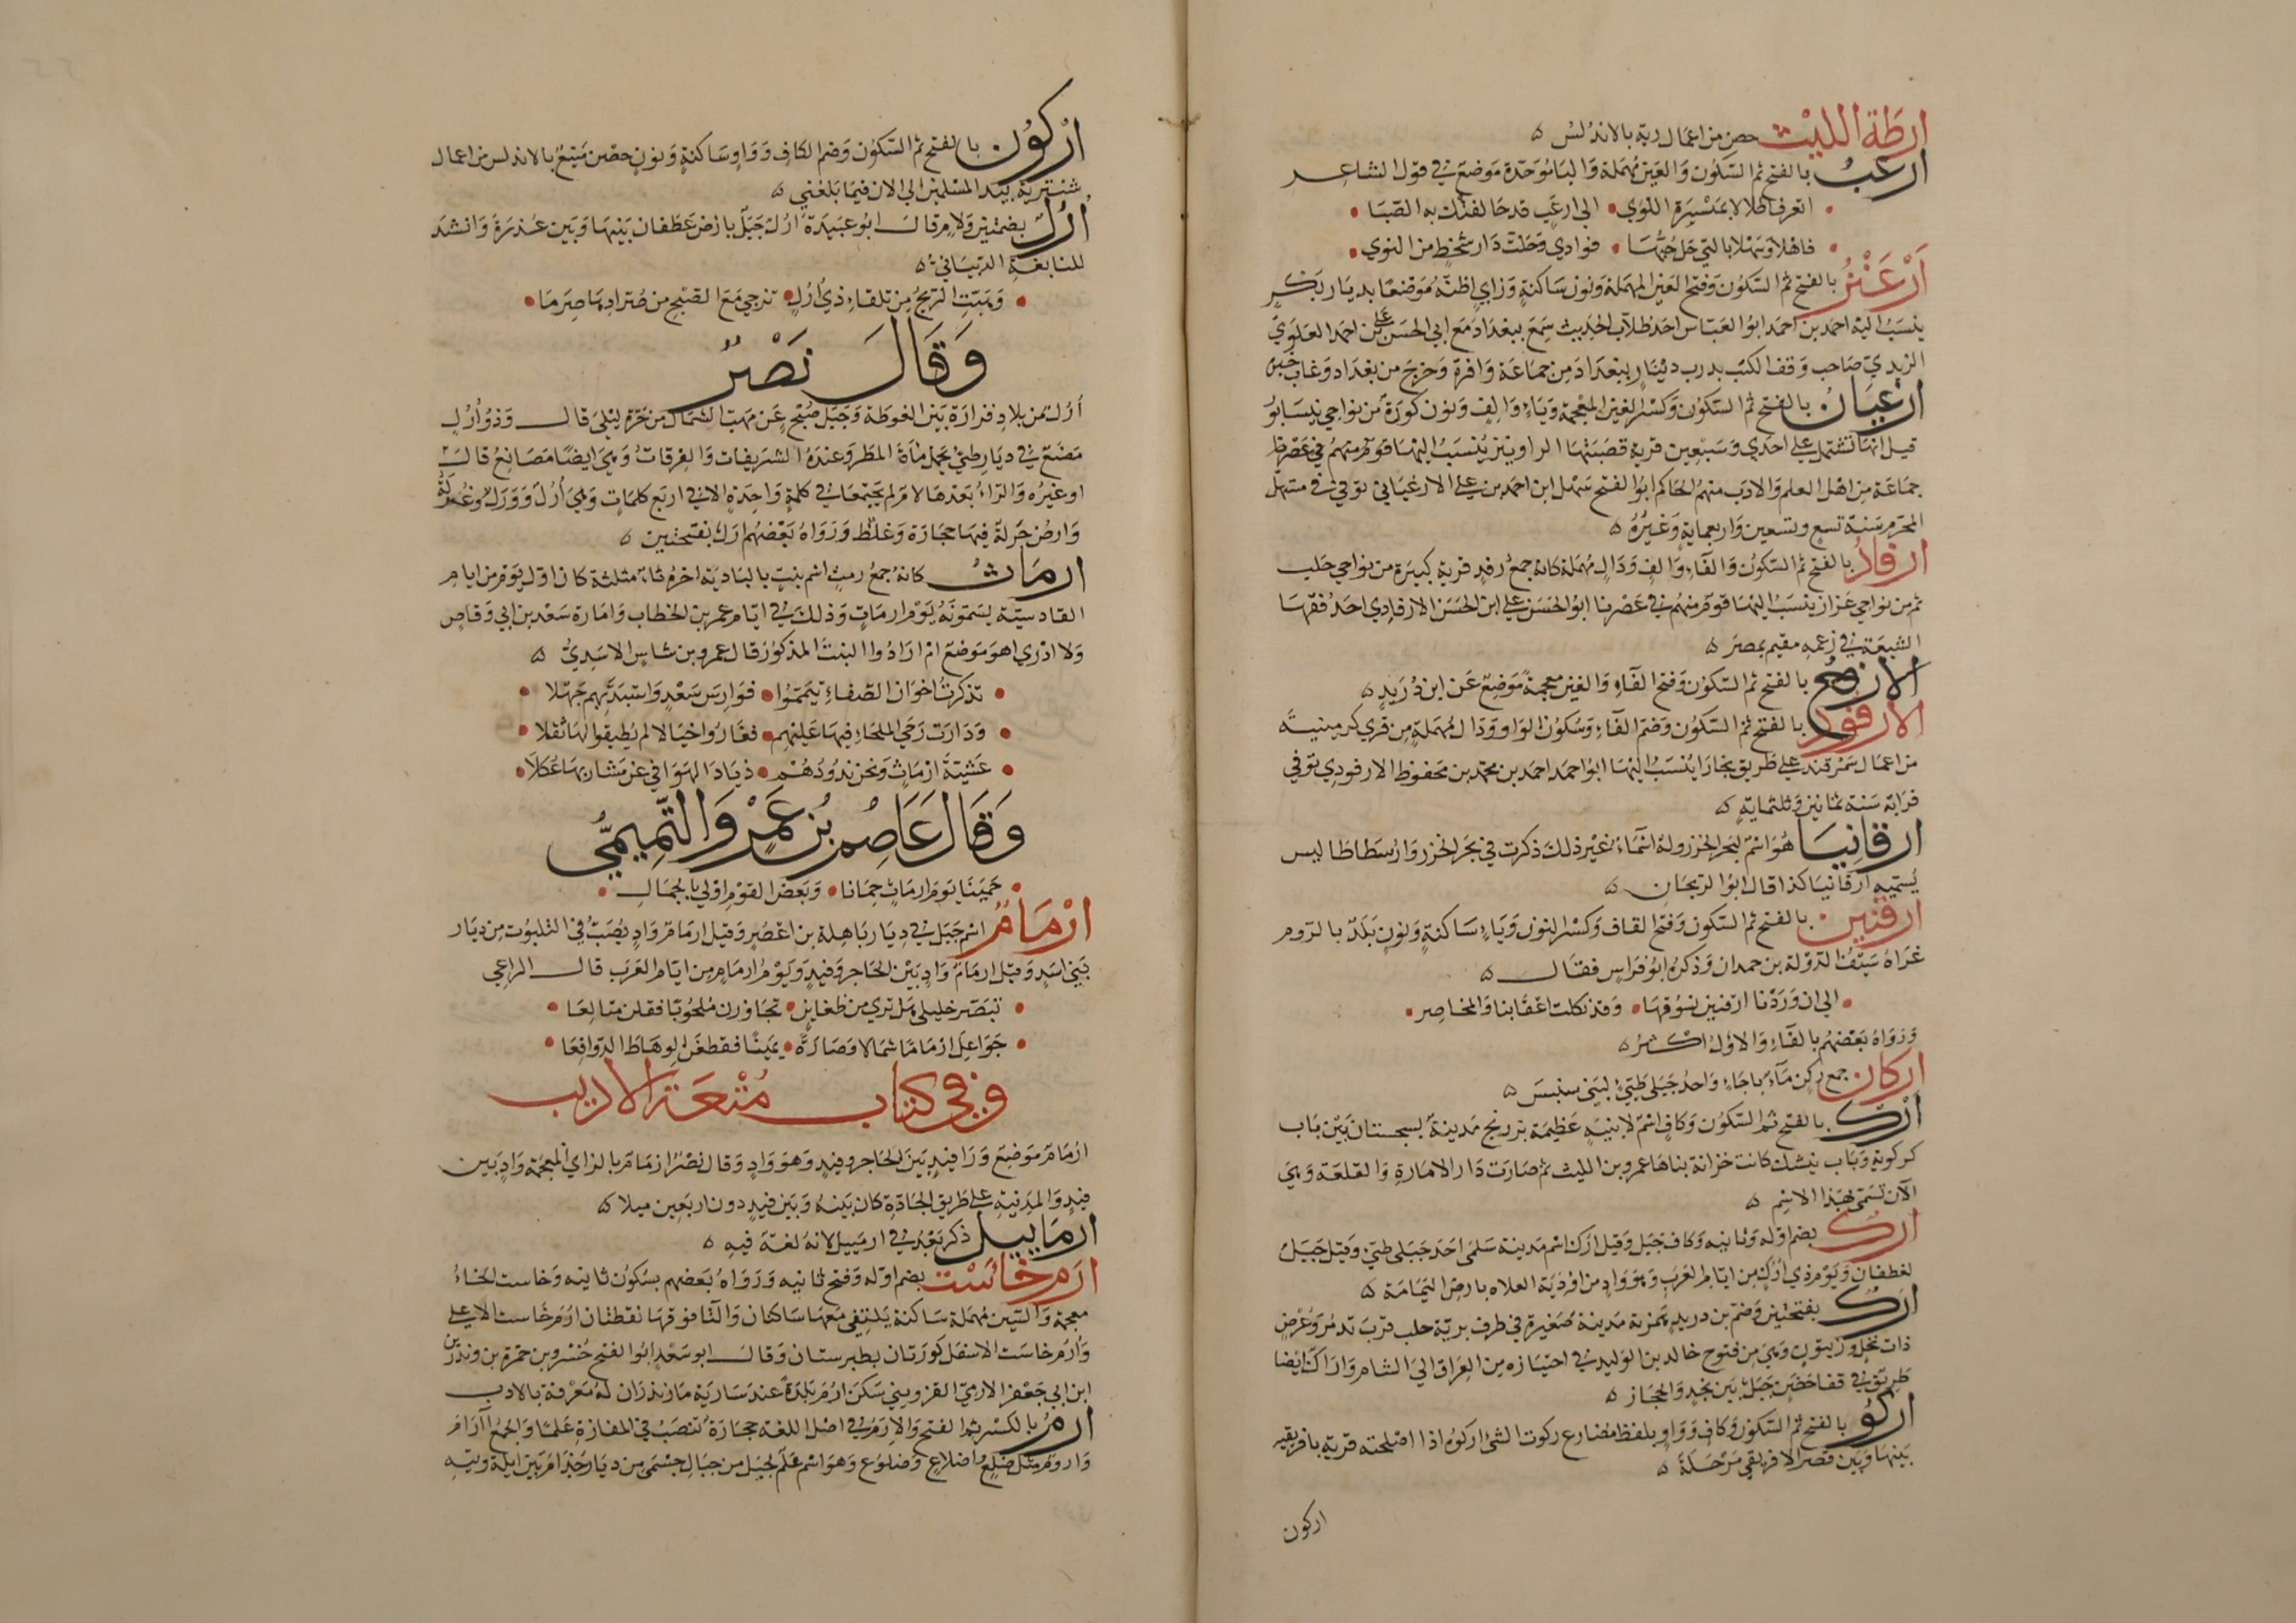 ارطة الليث حصن من اعمال رية بالاندلس ه
ارعب بالفتح ثم السكون والعين مهملة والبا موحدة موضع في قول الشاعر
اتعرف اطلالا بميسرة اللوي الي ارعب قد حالفتك به الصبا
فاهلا وسهلا بالتي حل حبها فوادي وحلت دار شحط من النوي
ارعنز بالفتح ثم السكون وفتح العين المهملة ونون ساكنة وزاي اظنه موضعا بديار بكر
ينسب اليه احمد بن احمد ابو العباس احد طلاب الحديث سمع ببغداد مع ابي الحسن علي بن احمد العلوي
الزيدي صاحب وقف الكتب بدرب دينار ببغداد من جماعة وافرة وخرج من بغداد وغاب خبره
ارغيان بالفتح ثم السكون وكسر الغين المعجمة وياء والف ونون كورة من نواحي نيسابور
قيل انها تشتمل علي احدي وسبعين قرية قصبتها الراونيز ينسب اليها قوم منهم في عصرنا
جماعة من اهل العلم والادب منهم الحاكم ابو الفتح سهل ابن احمد بن علي الارغياني توفي في مستهل
المحرم سنة تسع وتسعين واربعماية وغيره ه
ارفاد بالفتح ثم السكون والفاء والف ودال مهملة كانه جمع رفد قرية كبيرة من نواحي حلب
ثم من نواحي عزاز ينسب اليها قوم منهم في عصرنا ابو الحسن علي ابن الحسن الارفادي احد فقها
الشيعة في زعمه مقيم بمصر ه
الارفغ بالفتح ثم السكون وفتح الفاء والغين معجمة موضع عن ابن دريد ه
الارفود بالفتح ثم السكون وضم الفاء وسكون الواو ودال مهملة من قري كرمينية
من اعمال سمرقند علي طريق بخارا ينسب اليها ابو احمد احمد بن محمد بن محفوظ الارفودي توفي
قرابة سنة ثمانين وثلثماية ه
ارقانيا هو اسم لبحر الخزر وله اسماء غير ذلك ذكرت في بحر الخزر وارسطاطا ليس
يسميه ارقانيا كذا قال ابو الريحان ه
ارقنين بالفتح ثم السكون وفتح القاف وكسر النون وياء ساكنة ونون بلد بالروم
غزاه سيف الدولة بن حمدان وذكره ابو فراس فقال ه
الي ان وردنا ارقنين نسوقها وقد نكلت اعقابنا والمخاصر
ورواه بعضهم بالفاء والاول اكثر ه
اركان جمع ركن ماء باجاء واحد جبلي طيئ لبني سنبس ه
ارك بالفتح ثم السكون وكاف اسم لابنية عظيمة بزرنج مدينة بسجستان بين باب
كركوية وباب نيشك كانت خزانة بناها عمرو بن الليث ثم صارت دار الامارة والقلعة وهي
الان تسمي بهذا الاسم ه
ارك بضم اوله وثانيه وكاف جبل وقيل ارك اسم مدينة سلمي احد جبلي طيئ وقيل جبل
لغطفان ويوم ذي ارك من ايام العرب وهو واد من اودية العلاه بارض اليمامة ه
ارك بفتحتين وضم بن دريد همزته مدينة صغيرة في طرف برية حلب قرب تدمر وعرض
ذات نخل وزيتون وهي من فتوح خالد بن الوليد في اجتيازه من العراق الي الشام واراك ايضا
طريق في قفا حضن جبل بين نجد والحجاز ه
اركو بالفتح ثم السكون وكاف وواو بلفظ مضارع ركوت الشي اركوه اذا اصلحته قرية بافريقية
بينها وبين قصر الافريقي مرحلة ه
اركون
اركون بالفتح ثم السكون وضم الكاف وواو ساكنة ونون حصن منيع بالاندلس من اعمال
شنتبرية بيد المسلمين الي الان فيما بلغني ه
ارل بضمتين ولام قال ابو عبيدة ارل جبل بارض غطفان بينها وبين عذرة وانشد
للنابغة الذبياني ه
وهبت الريح من تلقاء ذي ارل تزجي مع الصبح من صرادها صرما
وقال نصر
ارل من بلاد فزارة بين الغوطة وجبل صبح عن مهب الشمال من حرة ليلي قال وذو ارل
مصنع في ديار طيئ يحمل ماء المطر وعنده الشريفات والغرقات وهي ايضا مصانع قال
او غيره والراء بعدها لام لم يجتمعا في كلمة واحدة الا في اربع كلمات وهي ارل وورل وغرلة
وارض جرلة فيها حجارة وغلظ ورواه بعضهم ارل بفتحتين ه
ارماث كانه جمع رمث اسم نبت بالبادية اخره ثاء مثلثة كان اول يوم من ايام
القادسية يسمونه يوم ارماث وذلك في ايام عمر بن الخطاب وامارة سعد بن ابي وقاص
ولا ادري اهو موضع ام ارادوا النبت المذكور قال عمرو بن شاس الاسدي ه
تذكرت اخوان الصفاء تيمموا فوارس سعد واستبد بهم جهلا
ودارت رحي الملحاء فيها عليهم فعادوا خيالا لم يطيقوا لها ثقلا
عشية ارماث ونحن نذودهم ذياد الهوافي عن مشاربها عكلا
وقال عاصم بن عمرو التميمي
حمينا يوم ارماث حمانا وبعض القوم اولي بالجمال
ارمام اسم جبل في ديار باهلة بن اعصر وقيل ارمام واد يصب في الثلبوت من ديار
بني اسد وقيل ارمام واد بين الحاجر وفيد ويوم ارمام من ايام العرب قال الراعي
تبصر خليلي هل تري من ظعاين تجاوزن ملحوبا فقلن متالعا
جواعل ارماما شمالا وصارة يمينا فقطعن الوهاط الدوافعا
وفي كتاب متعة الاديب
ارمام موضع ورا فيد بين الحاجر وفيد وهو واد وقال نصر ازمام بالزاي المعجمة واد بين
فيد والمدينة علي طريق الجادة كان بينه وبين فيد دون اربعين ميلا ه
ارماييل ذكر بعد في ارمييل لانه لغة فيه ه
ارم خاست بضم اوله وفتح ثانيه ورواه بعضهم بسكون ثانيه وخاست الخاء
معجمة والسين مهملة ساكنة يلتقي معها ساكنان والتا فوقها نقطتان ارم خاست الاعلي
وارم خاست الاسفل كورتان بطبرستان وقال ابو سعد ابو الفتح خسرو بن حمزة بن وندرين
ابن ابي جعفر الارمي القزويني سكن ارم بلدة عند سارية مازندران له معرفة بالادب
ارم بالكسر ثم الفتح والارم في اصل اللغة حجارة تنصب في المفازة علما والجمع آرام
واروم مثل ضلع واضلاع وضلوع وهو اسم علم لجبل من جبال حسمي من ديار جذام بين ايلة وتيه